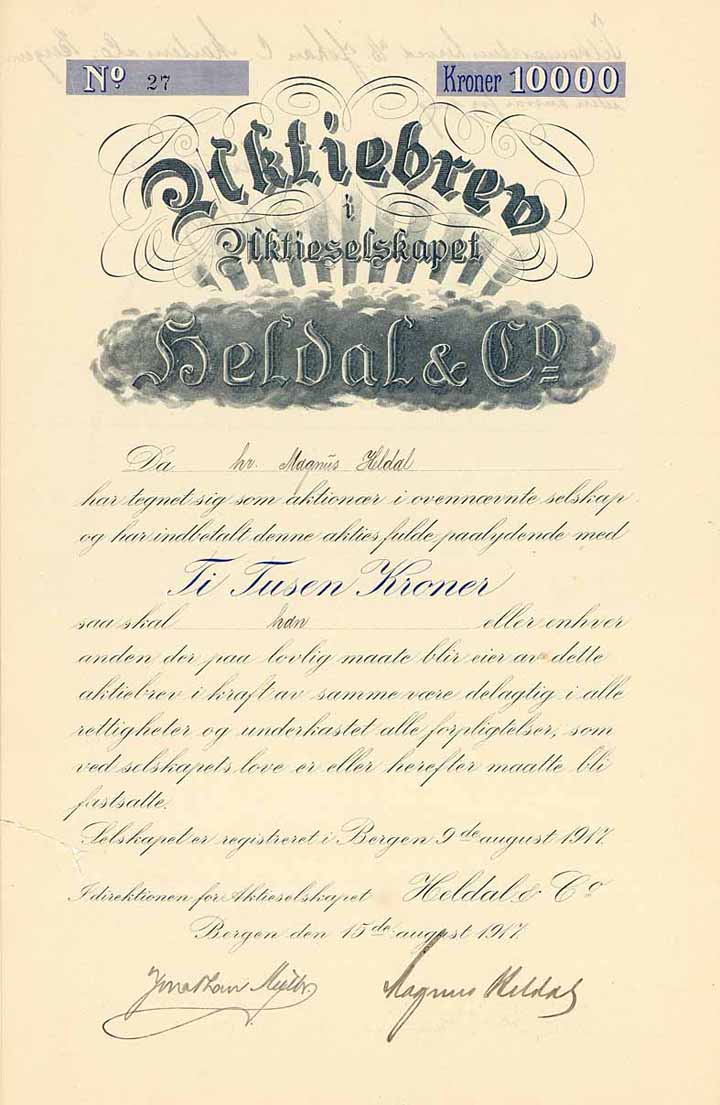 No 27 Kroner 10000
Aktiebrev
i
Aktieselskapet
Heldal & Co
Da hr. Magnus Heldal
har tegnet sig som aktionær i ovennævnte selskap
og har indbetalt denne akties fulde paalydende med
Ti Tusen Kroner
saa skal han eller enhver
anden der paa lovlig maate blir eier av dette
aktiebrev i kraft av samme være delagtig i alle
rettigheter og underkastet alle forpligtelser, som
ved selskapets love er eller herefter maatte bli
fastsatte.
Selskapet er registreret i Bergen 9de august 1917.
I direktionen for Aktieselskapet Heldal & Co
Bergen den 15de august 1917.
Jonathan Magnus Heldal